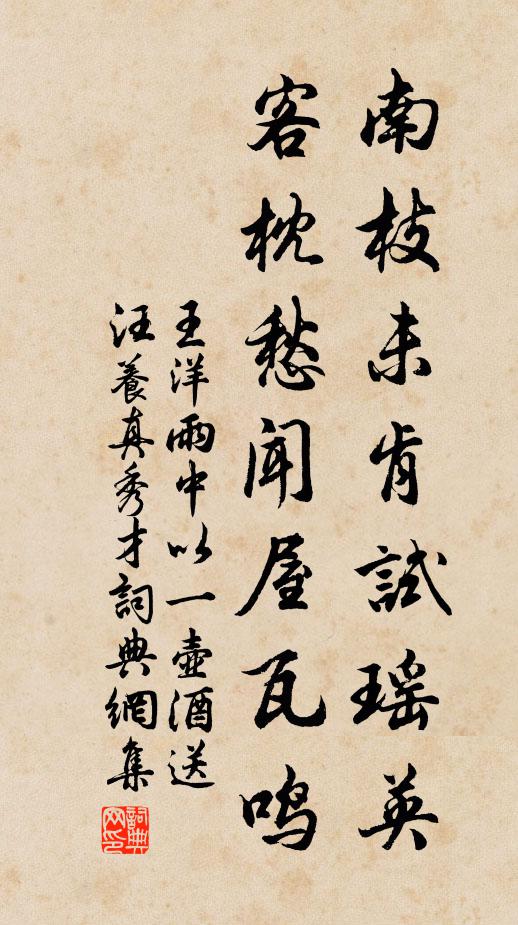 南枝未肯試瑶英
客枕愁闻屋瓦鸣
王洋雨中以一壶酒送
汪養真秀才詞典網集
詞典网印